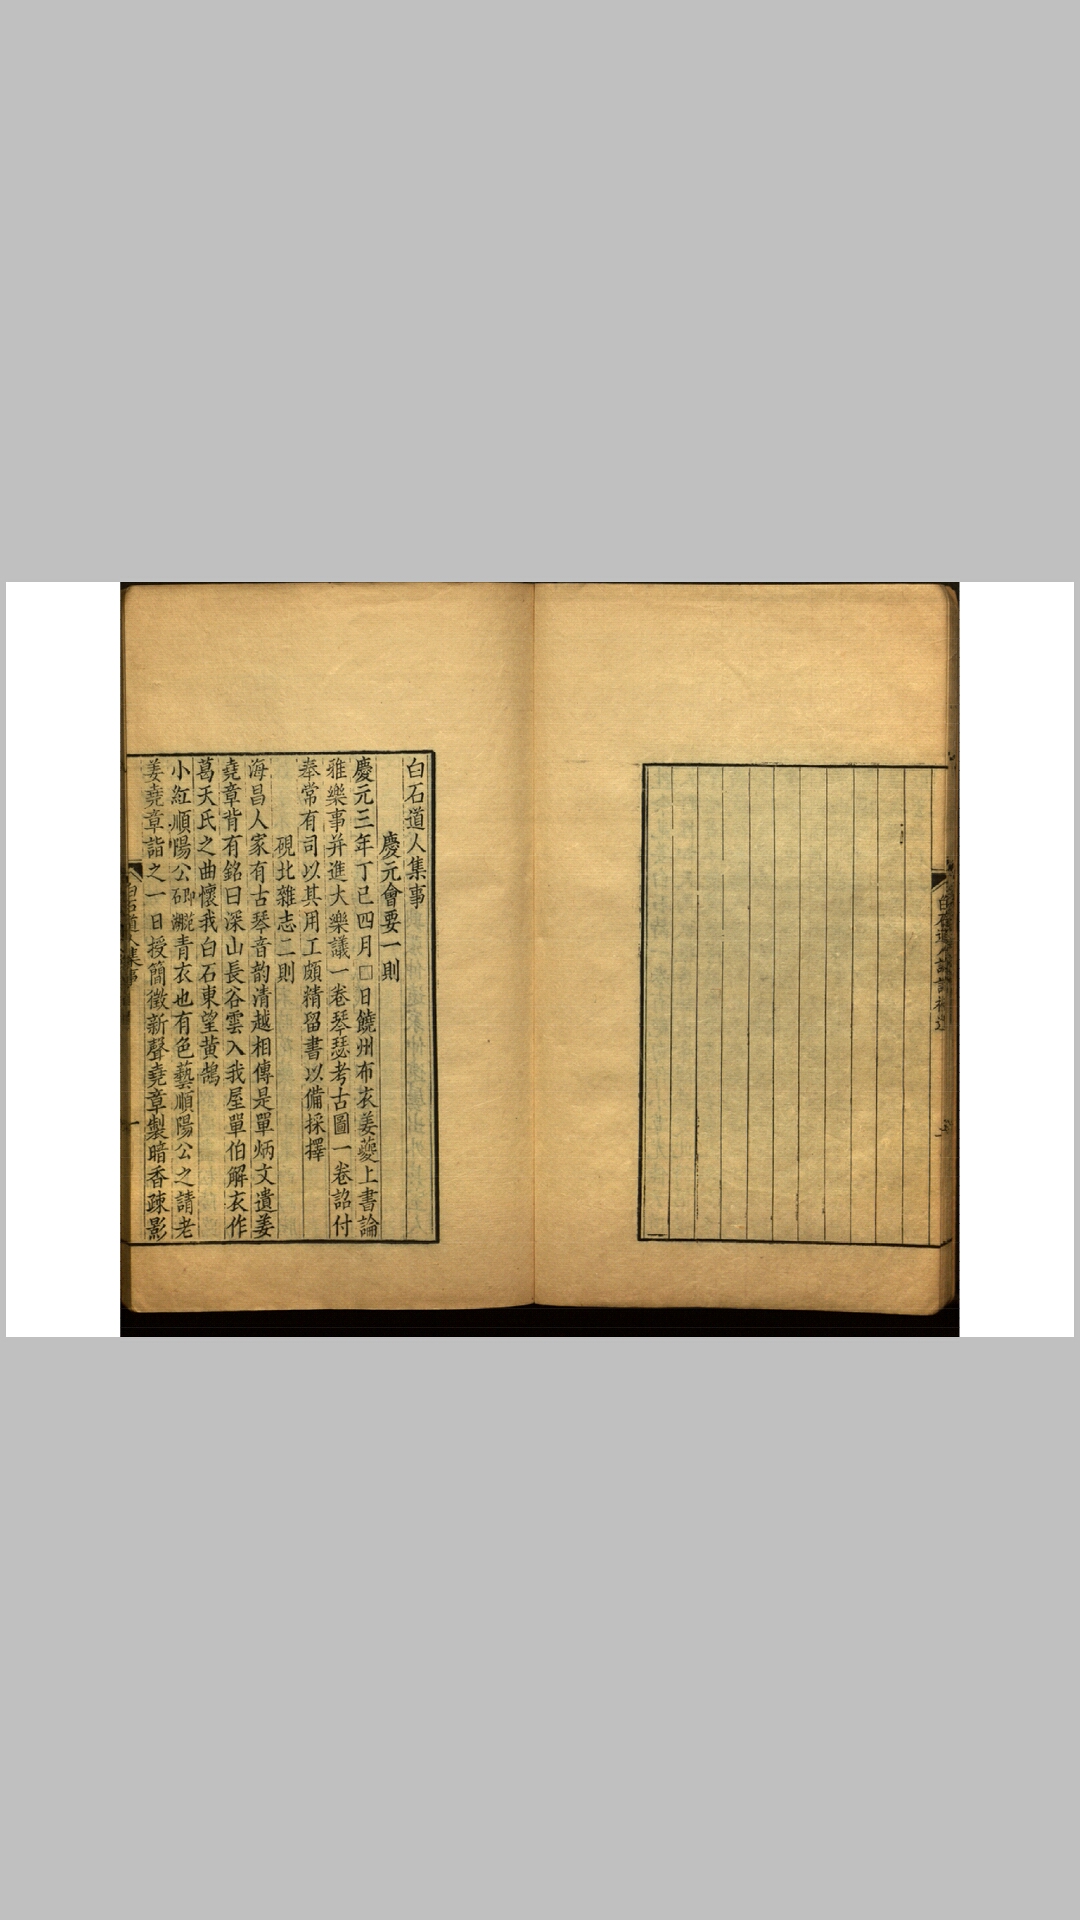 白石道人集事
慶元會要一則
慶元三年丁巳四月□日饒州布衣姜夔上書論
雅樂事并進大樂議一卷琴瑟考古圖一卷詔付
奉常有司以其用工頗精留書以備採擇
硯北雜志二則
海昌人家有古琴音韵清越相傳是單炳文遺姜
堯章背有銘曰深山長谷雲入我屋單伯解衣作
葛天氏之曲懷我白石東望黄鵠
小紅順陽公青衣也有色藝順陽公之請老
姜堯章詣之一日授簡徵新聲堯章製暗香疎影
白石道人集事
一